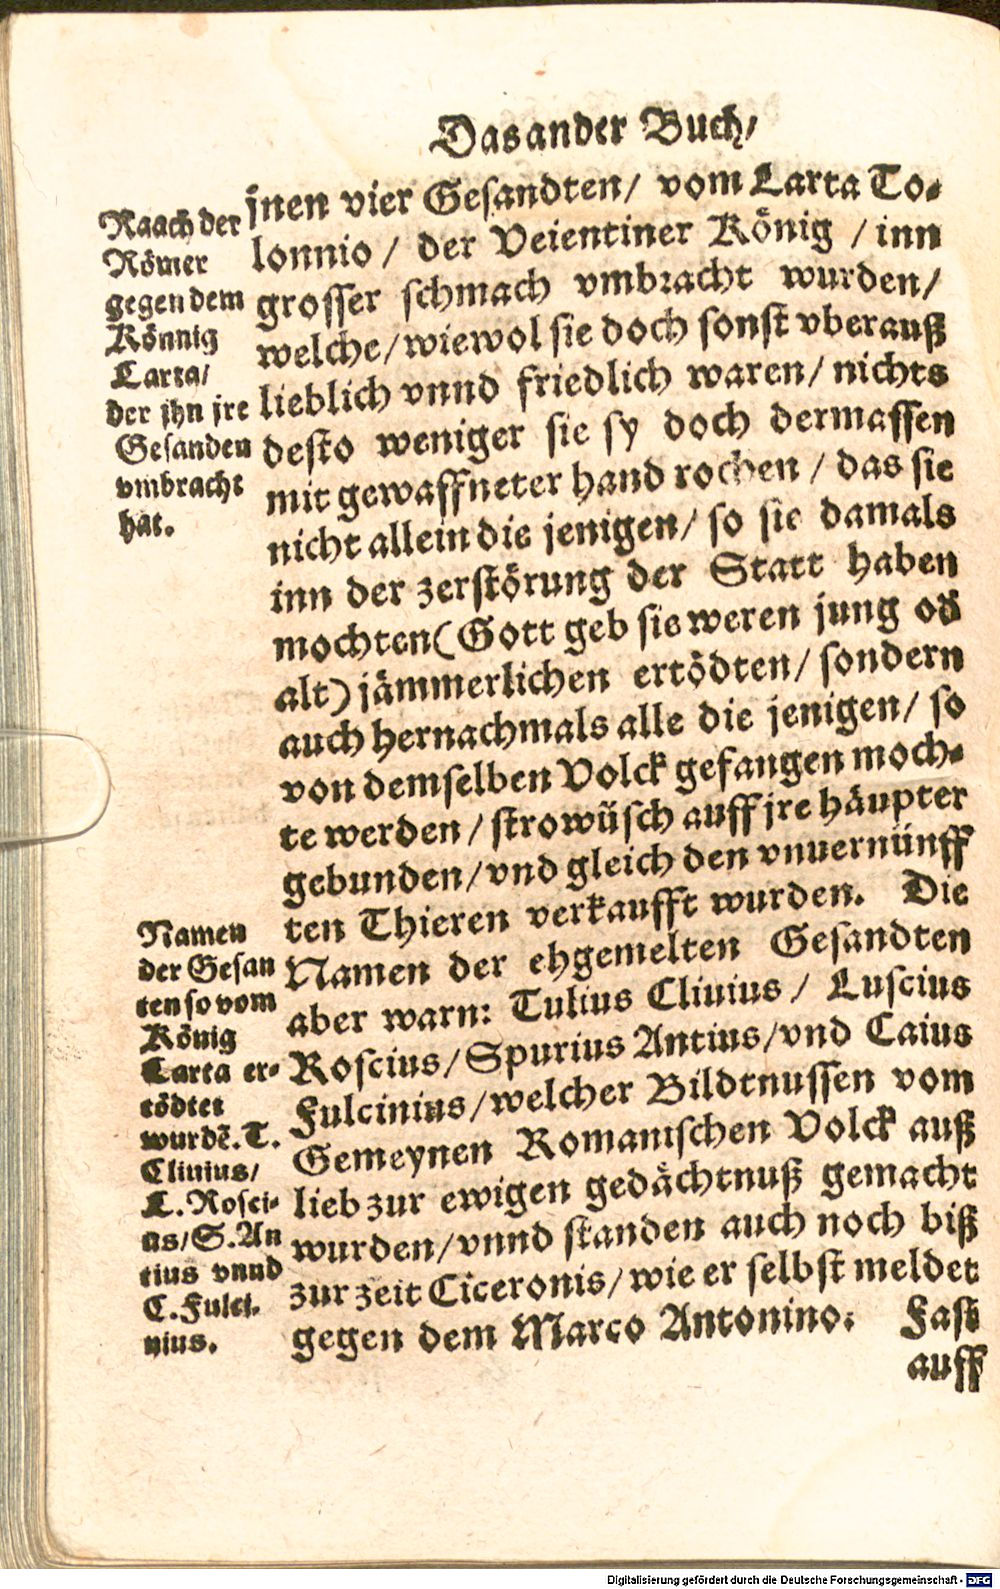 Das ander Buch/
jnen vier Gesandten/ vom Larta To-
lonnio/ der Veientiner König/ inn
grosser schmach vmbracht wurden/
welche/ wiewol sie doch sonst vberauß
lieblich vnnd friedlich waren/ nichts
desto weniger sie sy doch dermassen
mit gewaffneter hand rochen/ das sie
nicht allein die jenigen/ so sie damals
inn der zerstörung der Statt haben
mochten (Gott geb sie weren jung od̃
alt) jämmerlichen ertödten/ sondern
auch hernachmals alle die jenigen/ so
von demselben Volck gefangen moch-
te werden/ strowüsch auff jre häupter
gebunden/ vnd gleich den vnuernünff
ten Thieren verkaufft wurden. Die
Namen der ehgemelten Gesandten
aber warn: Tulius Cliuius/ Luscius
Roscius/ Spurius Antius/ vnd Caius
Fulcinius/ welcher Bildtnussen vom
Gemeynen Romanischen Volck auß
lieb zur ewigen gedächtnuß gemacht
wurden/ vnnd standen auch noch biß
zur zeit Ciceronis/ wie er selbst meldet
gegen dem Marco Antonino. Fast
auff
Raach der
Römer
gegen dem
Könnig
Larta/
der jhn jre
Gesanden
vmbracht
hat.
Namen
der Gesan
ten so vom
König
Larta er-
tödtet
wurdẽ. T.
Cliuius/
L. Rosci-
us/ S. An
tius vnnd
C. Fulci-
nius.
Digitalisierung gefördert durch die Deutsche Forschungsgemeinschaft - DFG